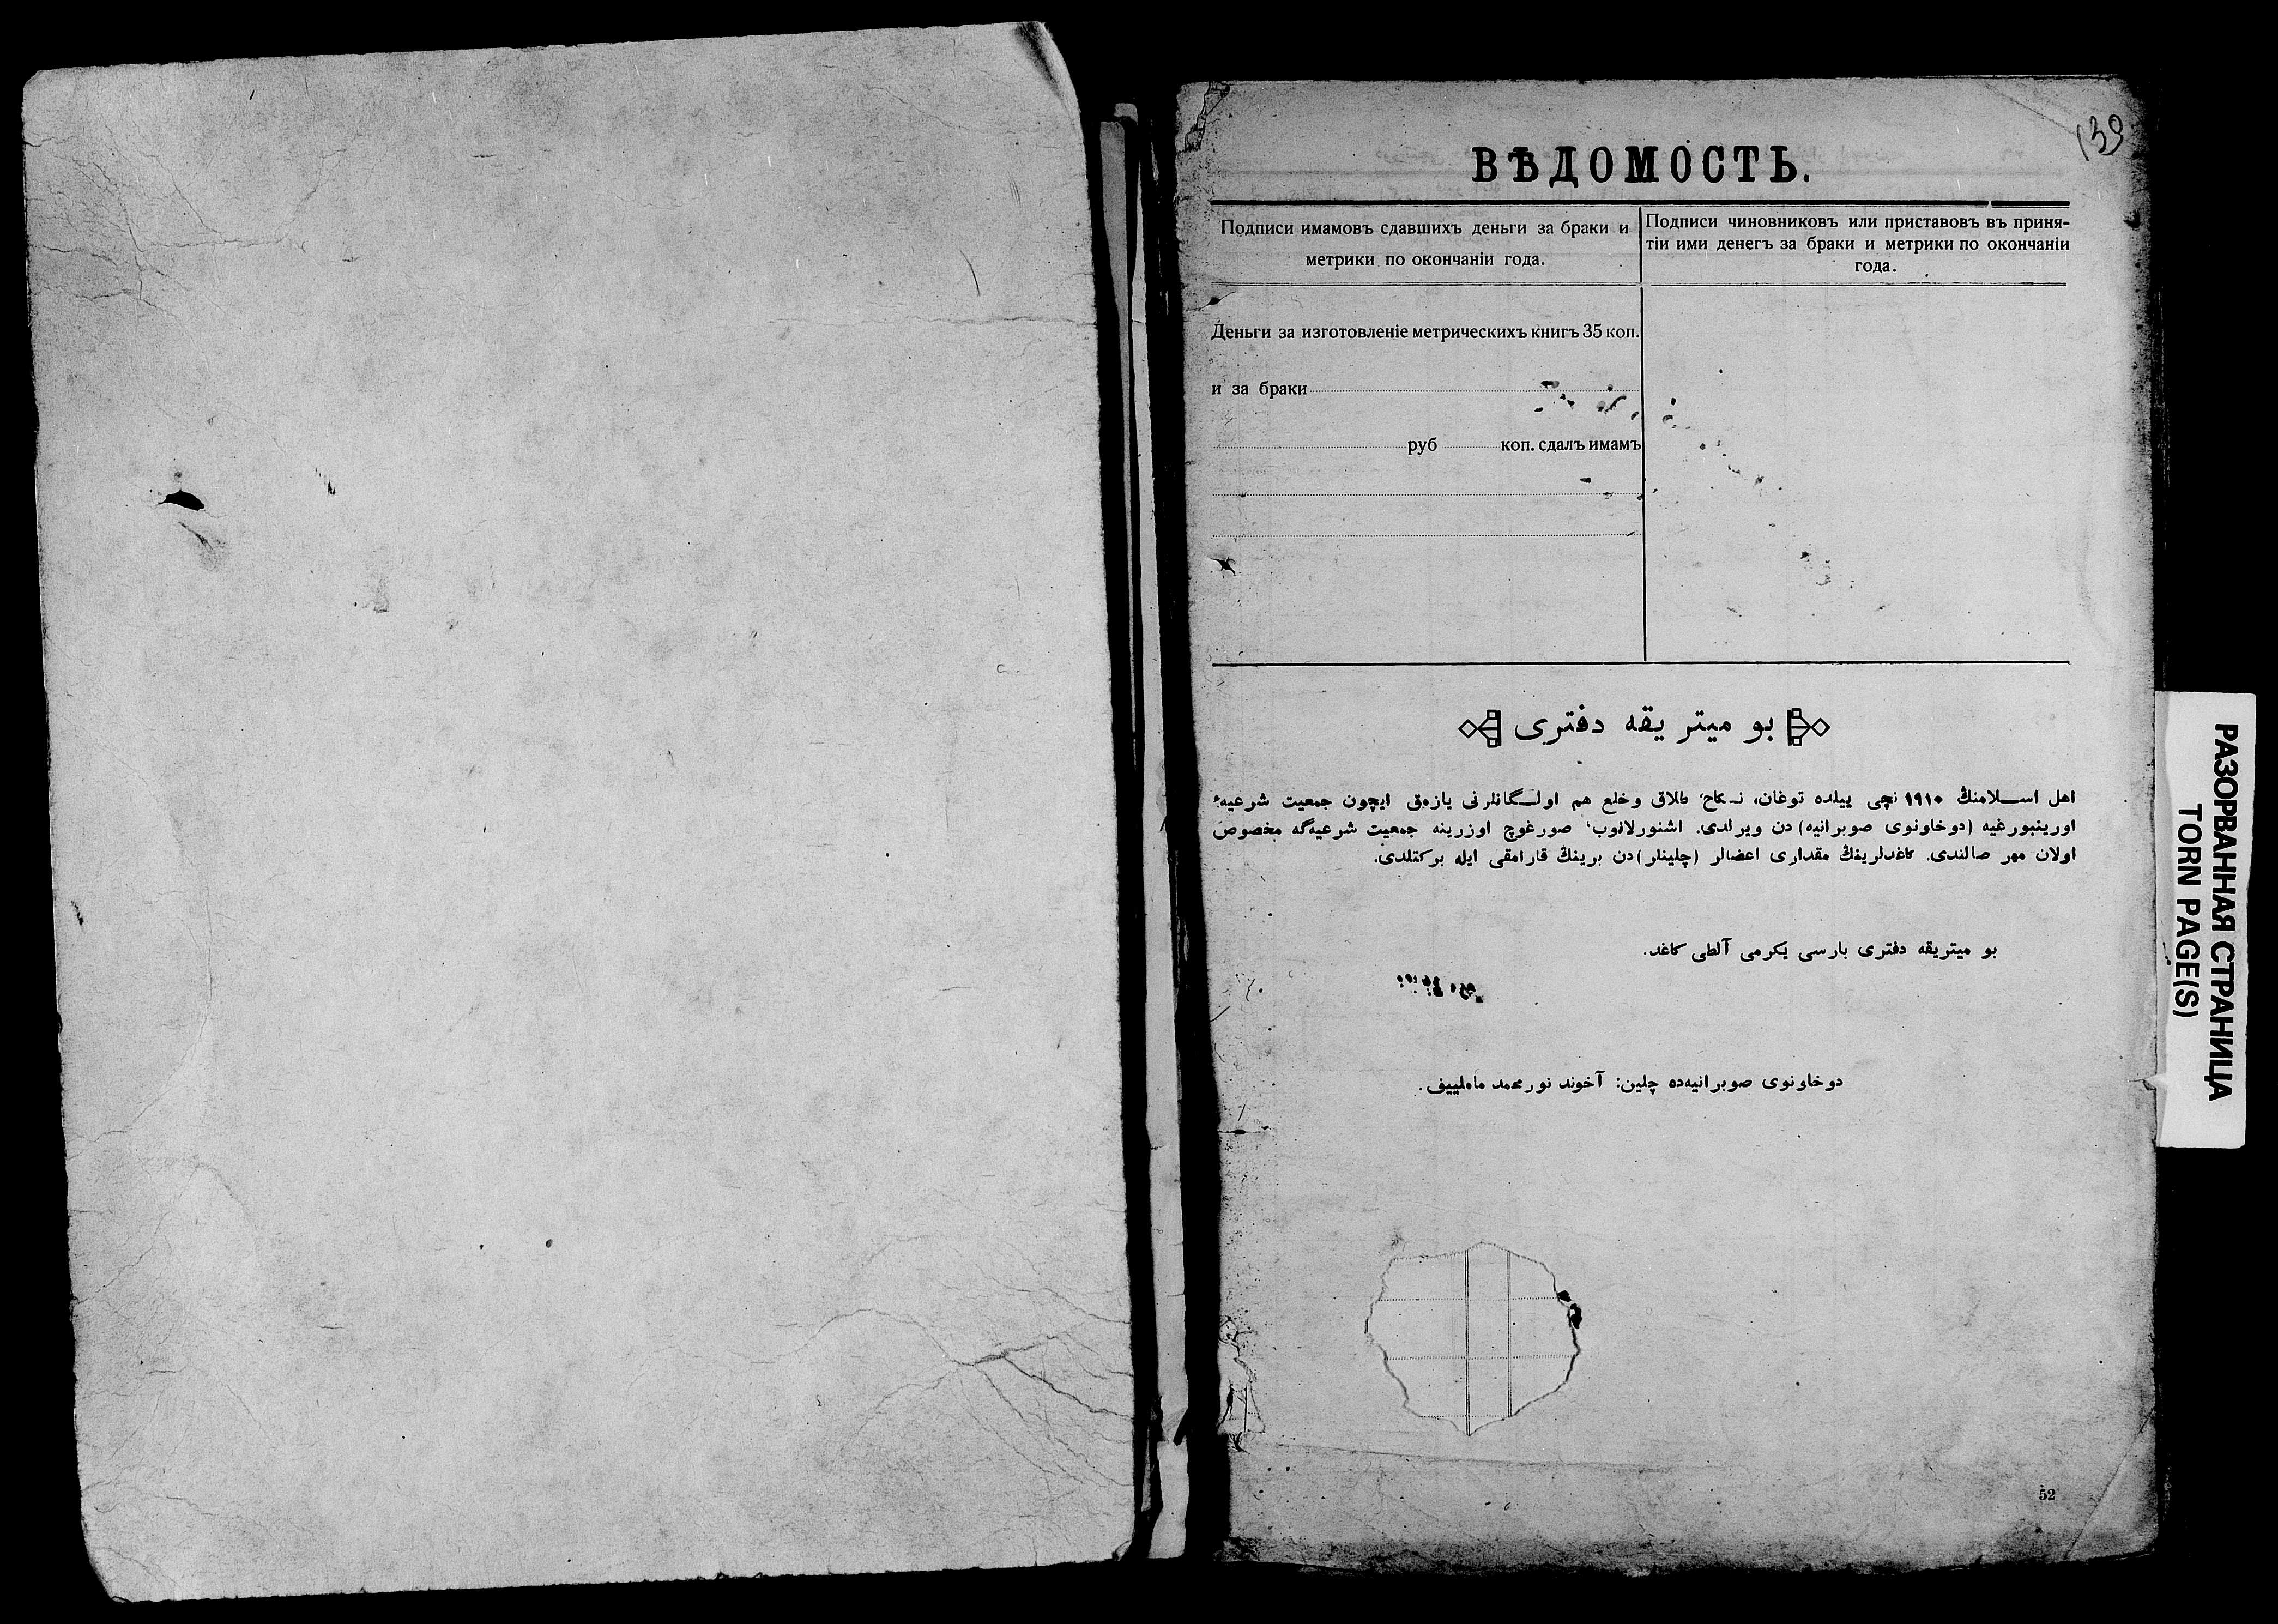 139
ВѢДОМОСТЬ.
Подписи имамовъ сдавшихъ деньги за браки и
метрики по окончаніи года.
Подписи чиновниковъ или приставовъ въ приня-
тіи ими денегъ за браки и метрики по окончаніи
года.
Деньги за изготовленіе метрическихъ книгъ 35 коп.
и за браки
руб коп. сдалъ имамъ
بو ميتريقه دفترى
اهل اسلامنڭ ١٩١٠ نچى ييلده توغان، نكاح، طلاق وخلع هم اولـگانلرنى يازمق ايچون جمعيت شرعيهٔ
اورينبورغيه (دوخاونوى صوبرانيه) دن ويرلدى. اشنورلانوب، صورغوچ اوزرينه جمعيت شرعيه‌گه مخصوص
اولان مهر صالندى. كاغدلرينڭ مقدارى اعضالر (چلينلر) دن برينڭ قارامقى ايله بركتلدى.
بو ميتريقه دفترى بارسى يكرمى آلطى كاغد.
دوخاونوى صوبرانيه‌ده چلين: آخوند نورمحمد ماملييف.
52
РАЗОРВАННАЯ СТРАНИЦА
TORN PAGE(S)